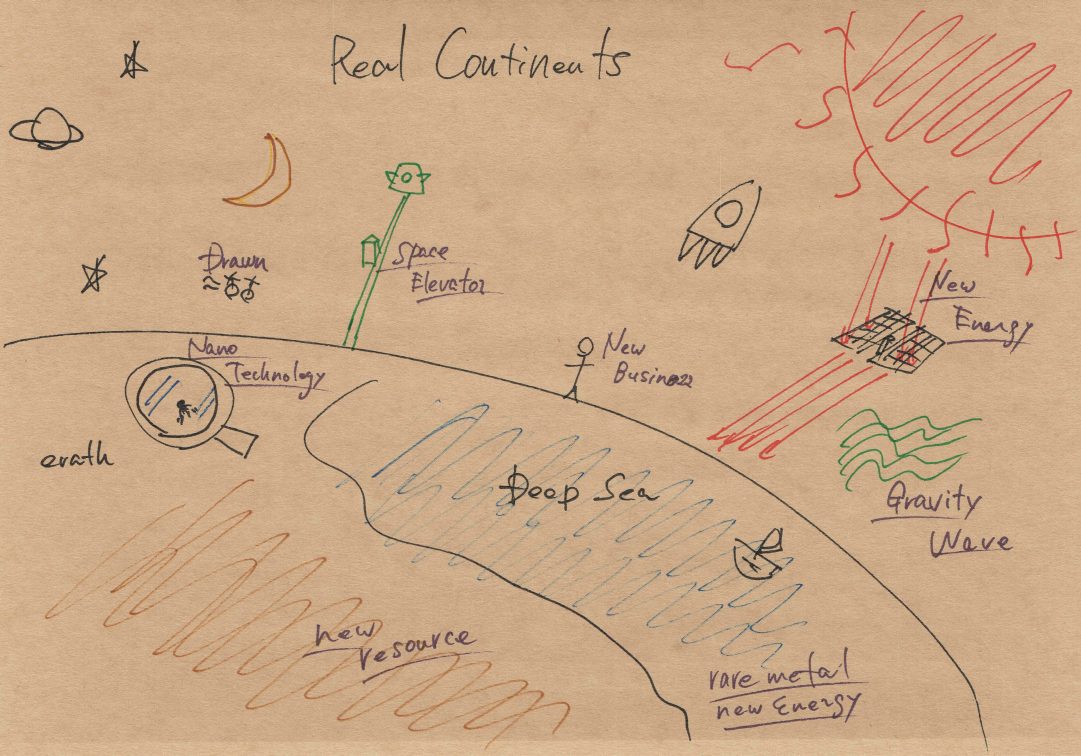 Real Continents
Drawn
Space
Elevator
New
Energy
Nano
Technology
New
Business
erath
Deep Sea
Gravity
Wave
new
resource
rare metal
new Energy